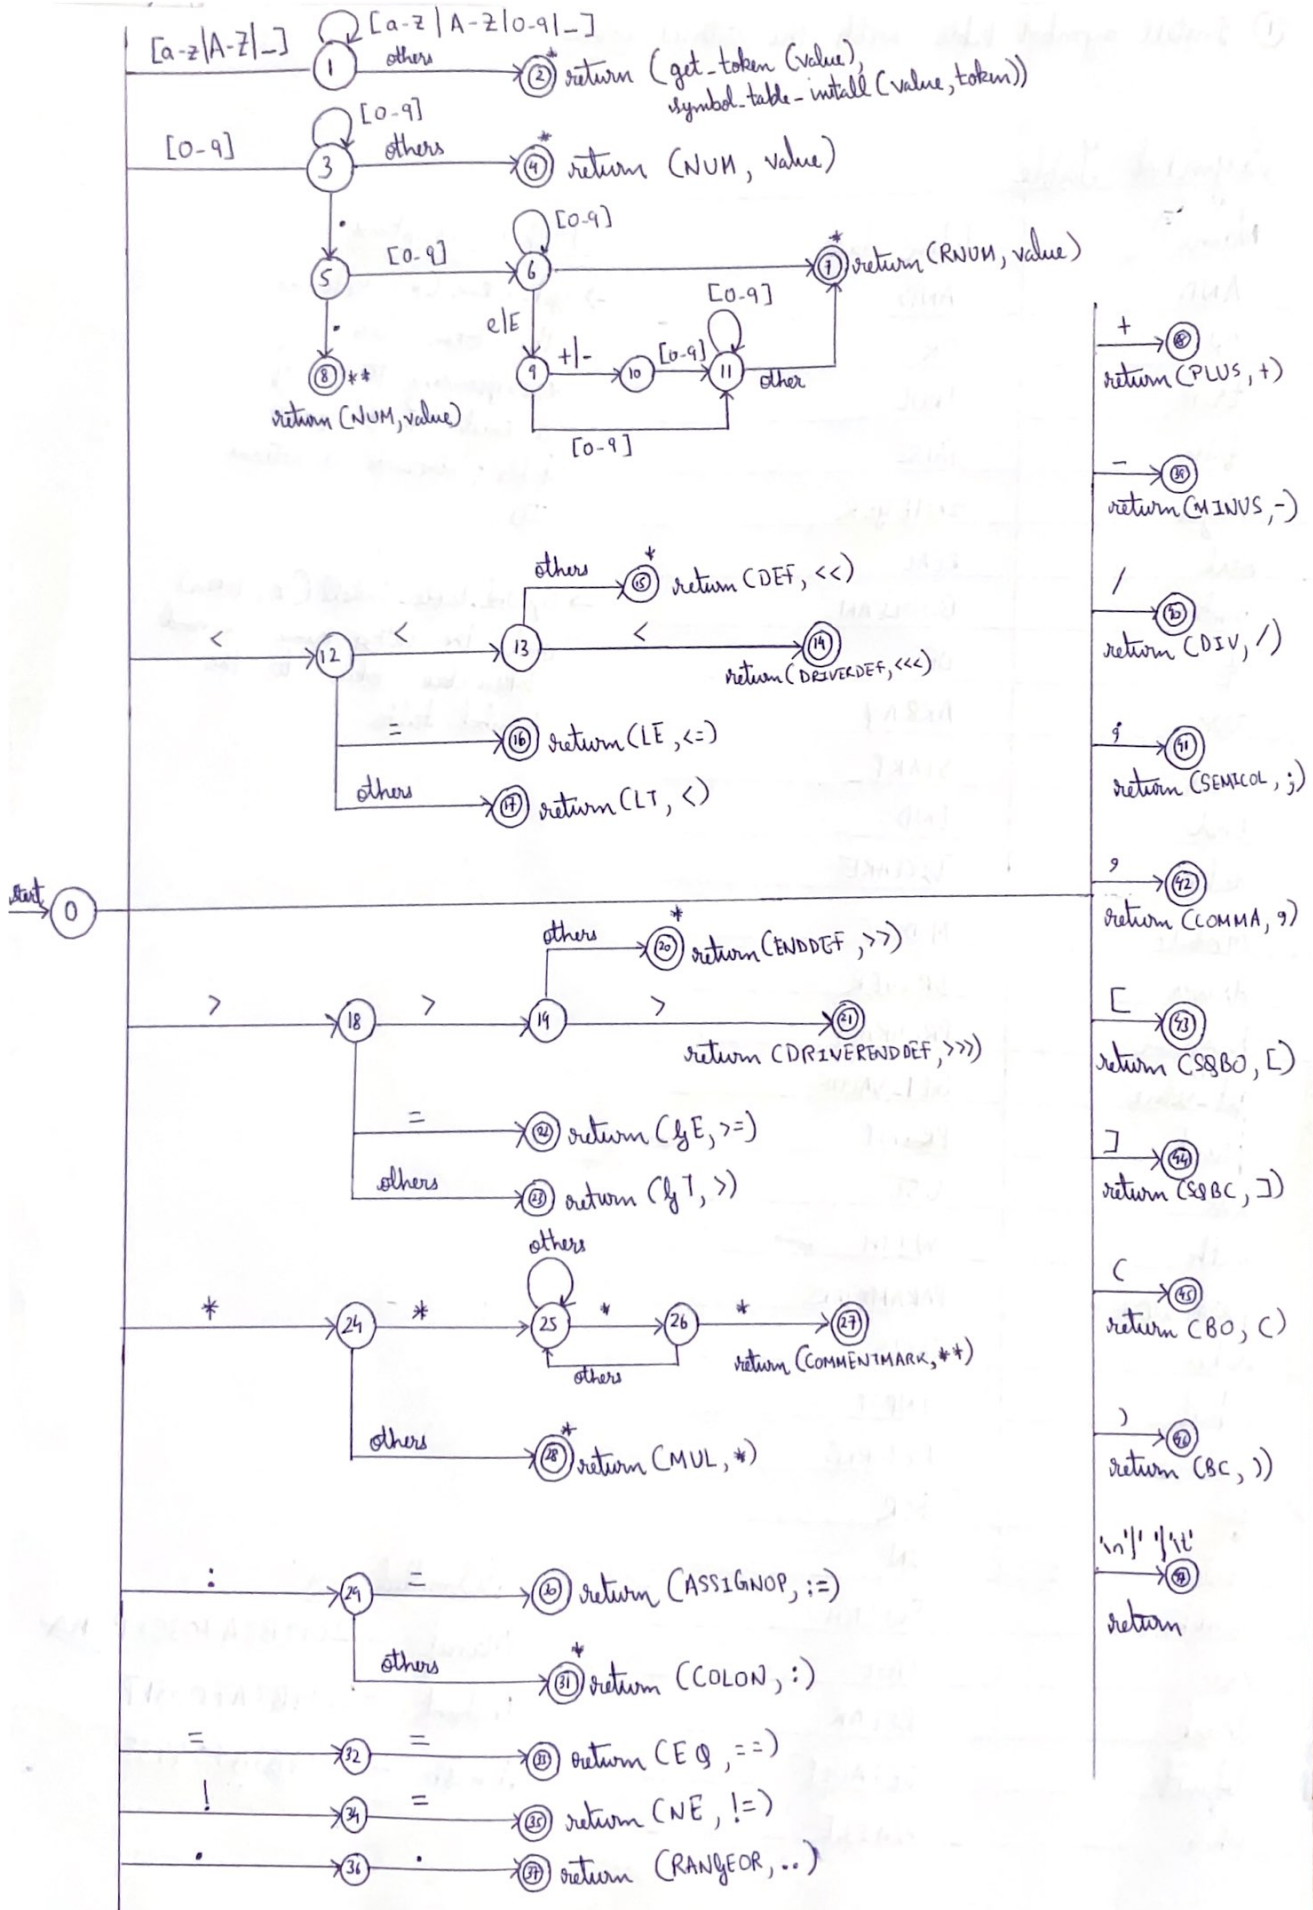 [a-z|A-Z|_]
[a-z|A-Z|0-9|_]
1
others
*
2
return (get_token (value),
symbol_table_intall (value, token))
[0-9]
[0-9]
3
others
*
4
return (NUM, value)
.
5
[0-9]
[0-9]
6
*
7
return (RNUM, value)
.
8
**
return (NUM, value)
e|E
9
+|-
10
[0-9]
[0-9]
11
other
[0-9]
<
12
<
13
others
*
15
return (DEF, <<)
<
14
return (DRIVERDEF, <<<)
=
16
return (LE, <=)
others
17
return (LT, <)
start
0
>
18
>
19
others
*
20
return (ENDDEF, >>)
>
21
return (DRIVERENDDEF, >>>)
=
22
return (GE, >=)
others
23
return (GT, >)
*
24
*
others
25
*
26
*
27
others
return (COMMENTMARK, **)
others
*
28
return (MUL, *)
:
29
=
30
return (ASSIGNOP, :=)
others
*
31
return (COLON, :)
=
32
=
33
return (EQ, ==)
!
34
=
35
return (NE, !=)
.
36
.
37
return (RANGEOR, ..)
+
return (PLUS, +)
-
39
return (MINUS, -)
/
40
return (DIV, /)
;
41
return (SEMICOL, ;)
,
42
return (COMMA, ,)
[
43
return (SQBO, [)
]
44
return (SQBC, ])
(
45
return (BO, ()
)
46
return (BC, ))
'\n'|' '|'\t'
return